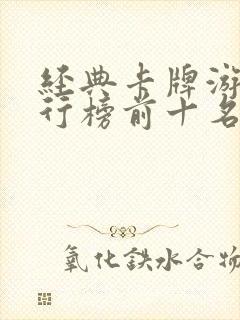 经典卡牌游
行榜前十名
氧化鉄水合物